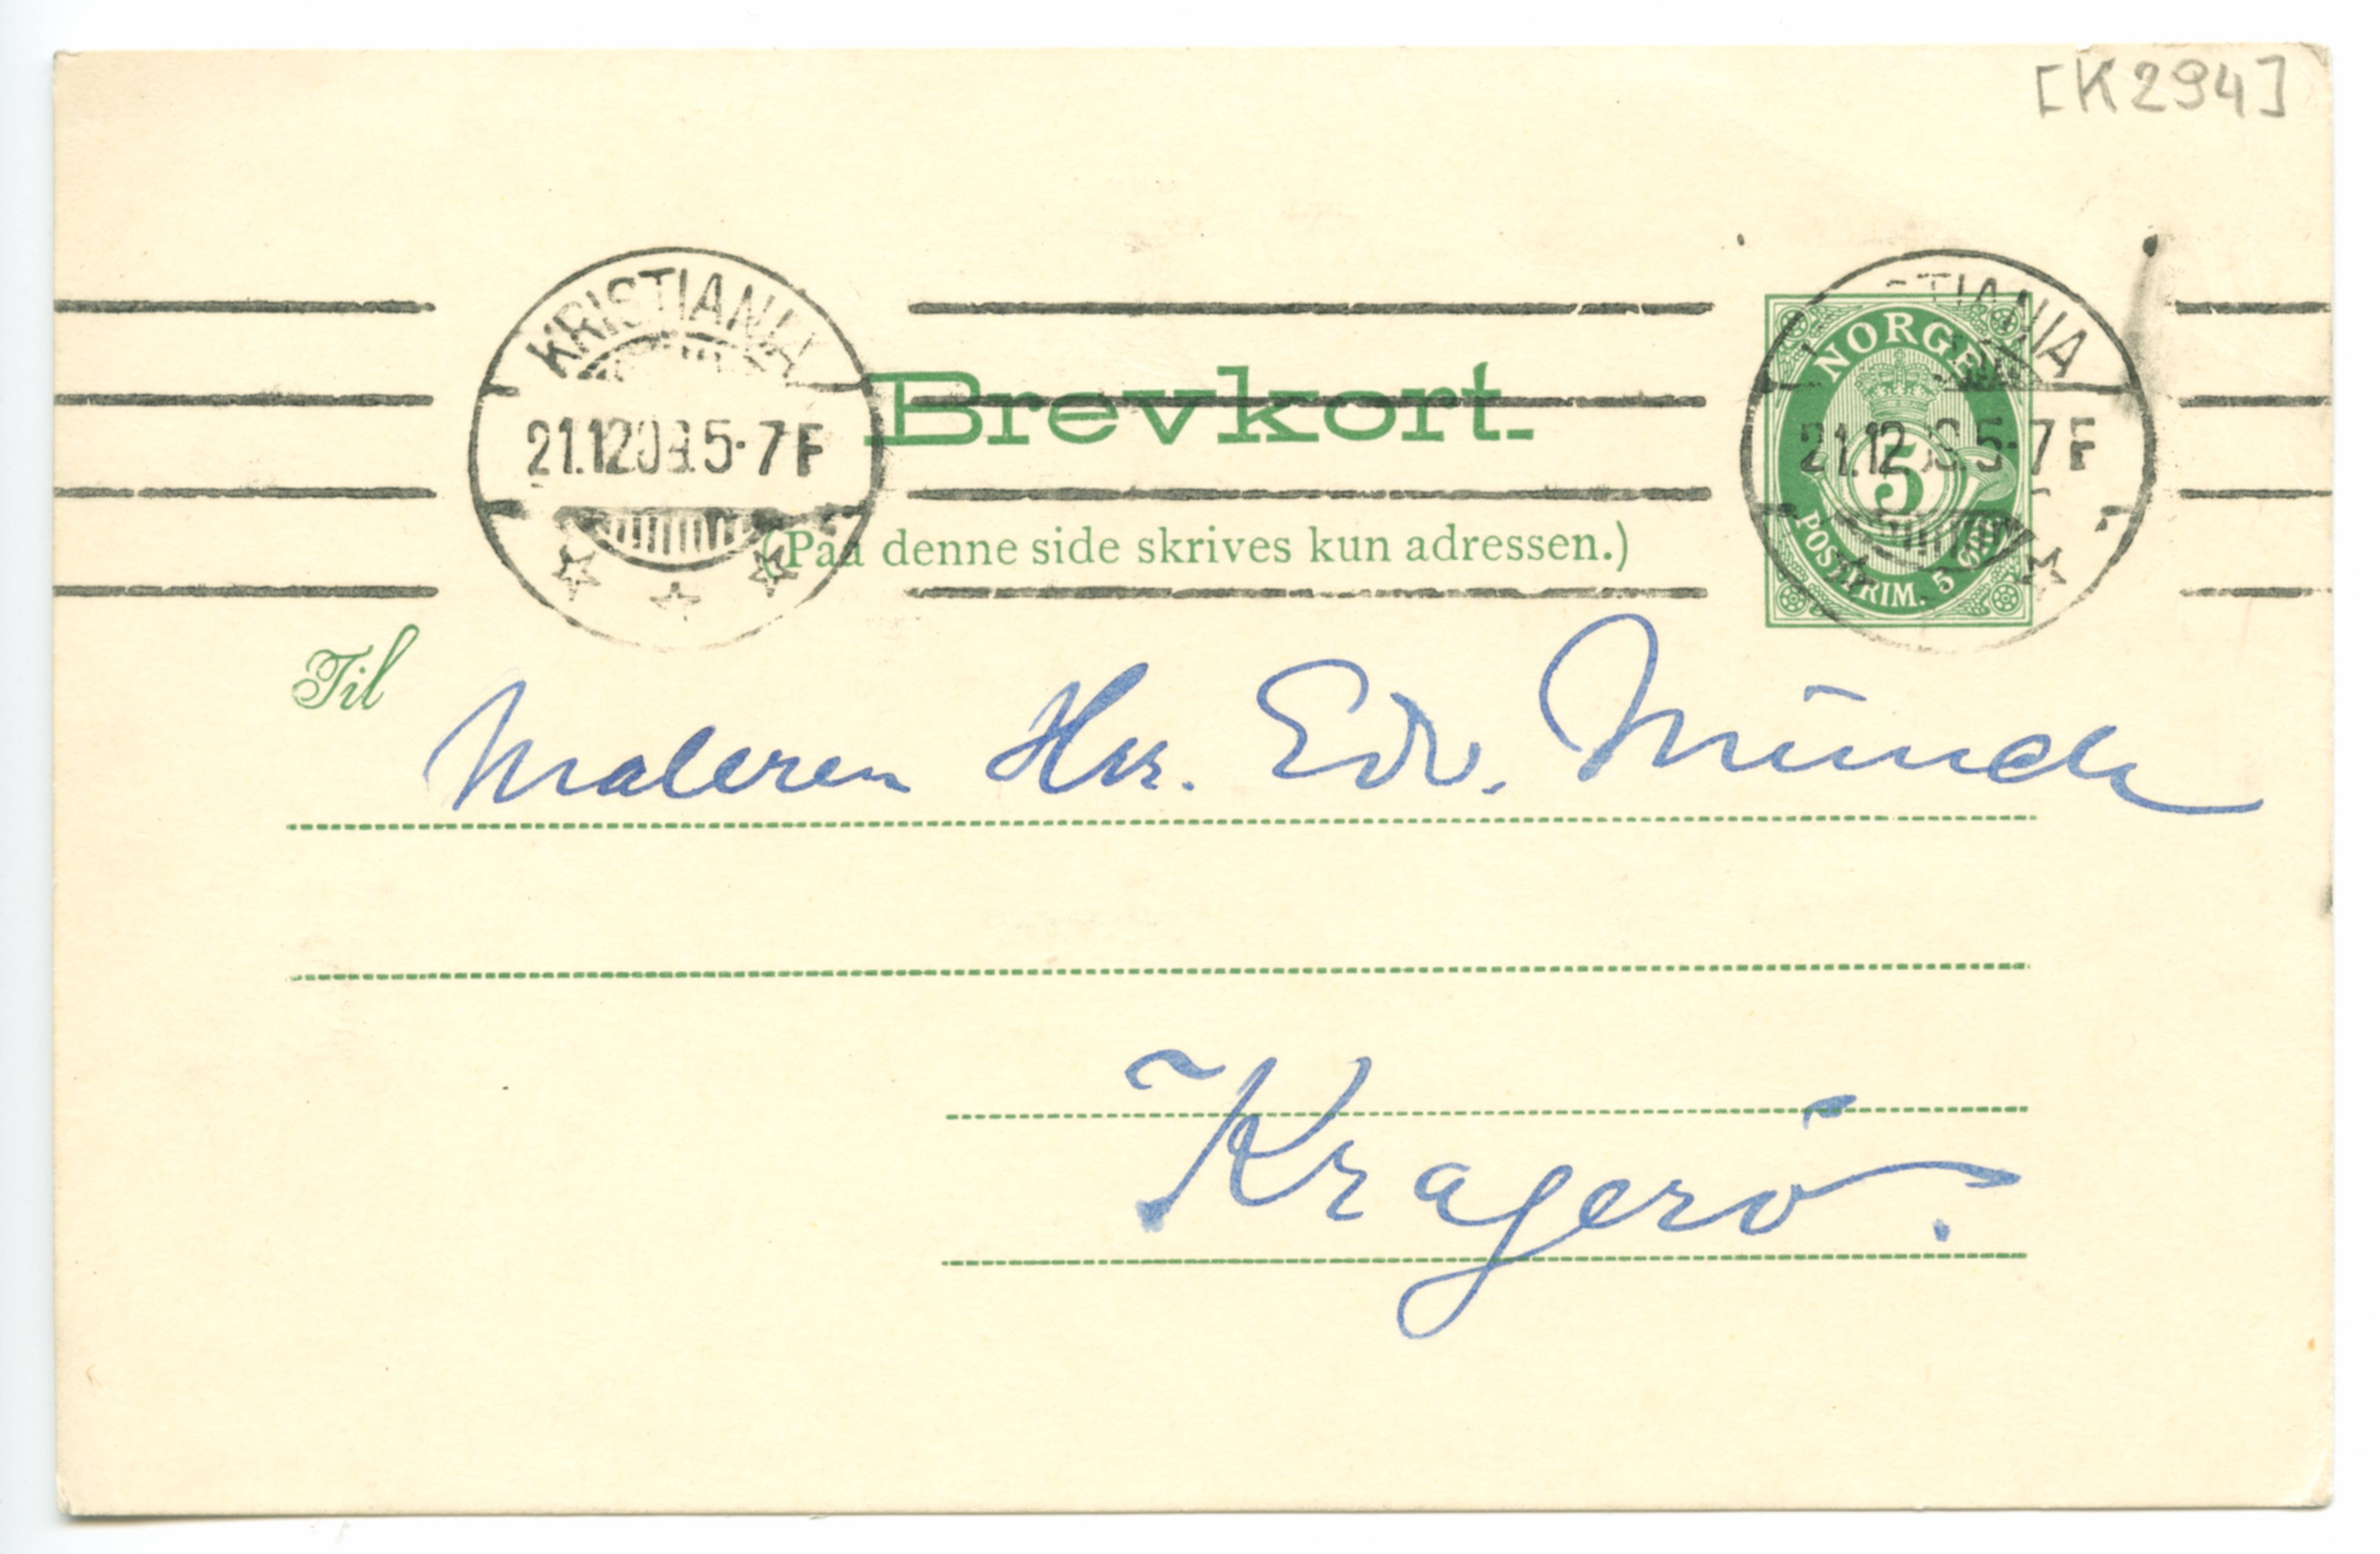 [K294]
KRISTIANIA
21.12.09.5-7F
Brevkort.
(Paa denne side skrives kun adressen.)
NORGE
5
POSTFRIM. 5 ØRE
TIANIA
21.12 5-7F
Til
Maleren Hrr. Edv. Munch
Kragerö.